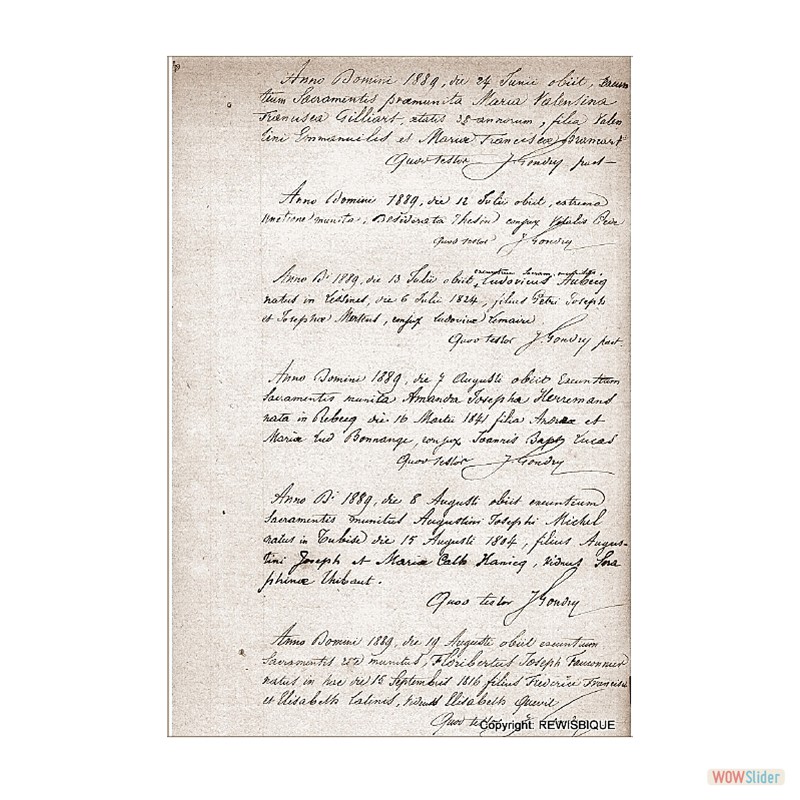 Anno Domini 1889, die 24 Junii obiit, exeun
tium Sacramentis præmunita Maria Valentina
Francisca Gilliart, ætatis 38 annorum, filia Valen
tini Emmanuilis et Mariæ Franciscæ Bramart
Quod testor J. Gondry past
Anno Domini 1889, die 12 Julii obiit, extrema
unctione munita, Desiderata Thesin conjux Vitalis
Quod testor J. Gondry
Anno D. 1889, die 13 Julii obiit, Ludovicus Aubecq
natus in Lestines, die 6 Julii 1824, filius Petri Joseph
et Josephæ conjux Ludovicæ Lemaire
Quod testor J. Gondry past.
Anno Domini 1889, die 7 Augusti obiit Exeuntium
Sacramentis munita Amanda Josepha Herremans
nata in Rebecq die 16 Martii 1841 filia Andreæ et
Mariæ Lud Bonnange, conjux Joannis Bapt Lucas
Quod testor J. Gondry
Anno D. 1889, die 8 Augusti obiit exeuntium
Sacramentis munitus Augustini Josephi Michel
natus in Tubise die 15 Augusti 1804, filius Augus-
tini Joseph et Mariæ Cath Hanicq, viduus Sera
phinæ Thibaut.
Quod testor J Gondry
Anno Domini 1889, die 19 Augusti obiit exeuntium
Sacramentis munitus, Floribertus Joseph Fauconnier
natus in hac die 15 Septembris 1816 filius Frederici Francisci
et Elisabeth Latinis, viduus Elisabeth Quevit
Quod
Copyright: REWISBIQUE
WOWSlider